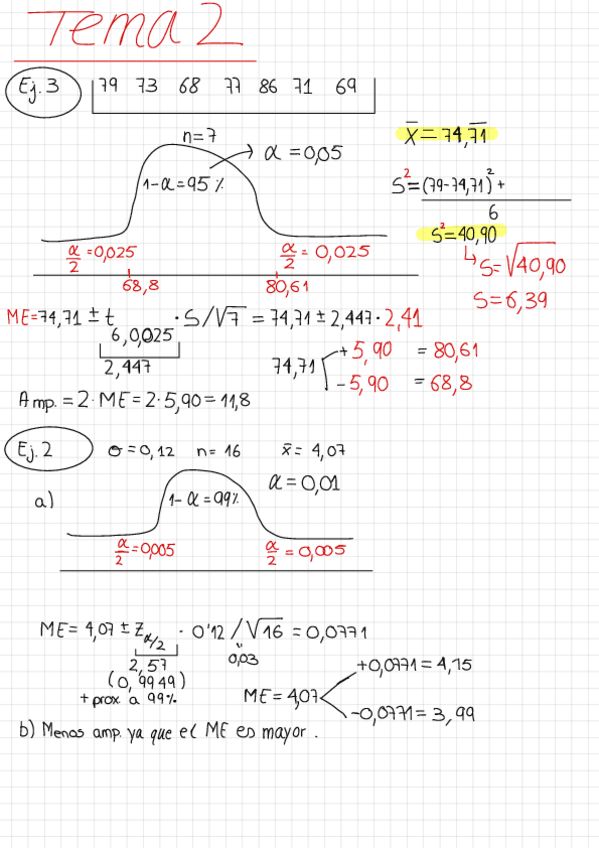 Tema 2
Ej. 3
79 73 68 77 86 71 69
n=7
α = 0,05
1-α = 95 %
α/2 = 0,025
α/2 = 0,025
68,8
80,61
x̄ = 74,71
S² = (79-74,71)² +
6
S² = 40,90
↳ S = √40,90
S = 6,39
ME = 74,71 ± t 6,0,025 · S/√7 = 74,71 ± 2,447 · 2,41
2,447
74,71
+ 5,90 = 80,61
- 5,90 = 68,8
Amp. = 2 · ME = 2 · 5,90 = 11,8
Ej. 2
σ = 0,12 n = 16 x̄ = 4,07
α = 0,01
a)
1-α = 99%
α/2 = 0,005
α/2 = 0,005
ME = 4,07 ± Z α/2 · 0'12 / √16 = 0,0771
0,03
2,57
(0,9949)
+ prox a 99%
ME = 4,07
+0,0771 = 4,15
-0,0771 = 3,99
b) Menos amp. ya que el ME es mayor.